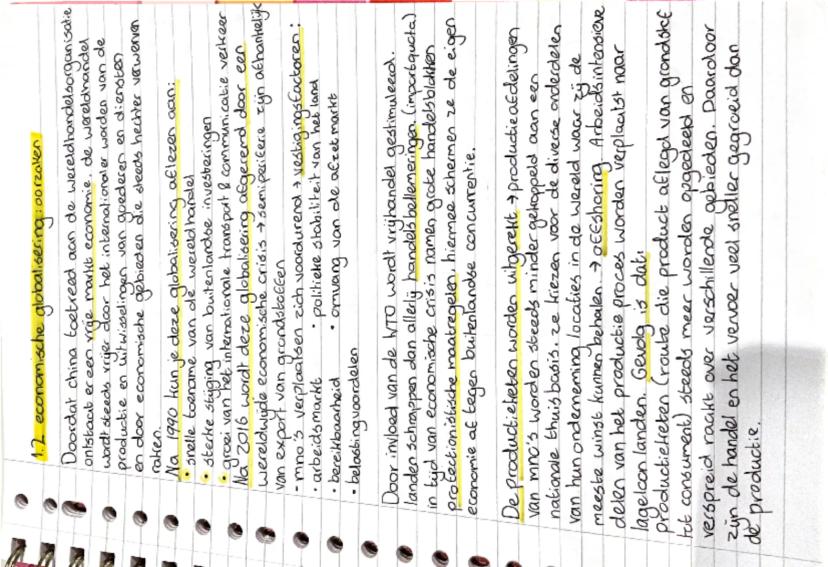 1.2 economische globalisering: oorzaken
Doordat china toetreed aan de wereldhandelsorganisatie
ontstaat er een vrije markt economie. de wereldhandel
wordt steeds vrijer door het internationaler worden van de
productie en uitwisselingen van goederen en diensten
en door economische gebieden die steeds hechter verweven
raken.
Na 1990 kun je deze globalisering aflezen aan:
• snelle toename van de wereldhandel
• sterke stijging van buitenlandse investeringen
• groei van het internationale transport & communicatie verkeer
Na 2016 wordt deze globalisering afgeremd door een
wereldwijde economische crisis → semiperiferie zijn afhankelijk
van export van grondstoffen
- mno's verplaatsen zich voordurend → vestigingsfactoren:
• arbeidsmarkt • politieke stabiliteit van het land
• bereikbaarheid • omvang van de afzetmarkt
• belastingvoordelen
Door invloed van de WTO wordt vrijhandel gestimuleerd.
landen schrappen dan allerlij handelsbellemeringen. (importquota)
in tijd van economische crisis namen grote handelsblokken
protectionistische maatregelen, hiermee schermen ze de eigen
economie af tegen buitenlandse concurrentie.
De productieketen worden uitgerekt → productieafdelingen
van mno's worden steeds minder gekoppeld aan een
nationale thuisbasis. ze kiezen voor de diverse onderdelen
van hun onderneming locaties in de wereld waar zij de
meeste winst kunnen behalen. → offshoring. Arbeidsintensieve
delen van het productie proces worden verplaatst naar
lageloon landen. Gevolg is dat:
productieketen (route die product aflegd van grondstof
tot consument) steeds meer worden opgedeeld en
verspreid raakt over verschillende gebieden. Daardoor
zijn de handel en het vervoer veel sneller gegroeid dan
de productie.